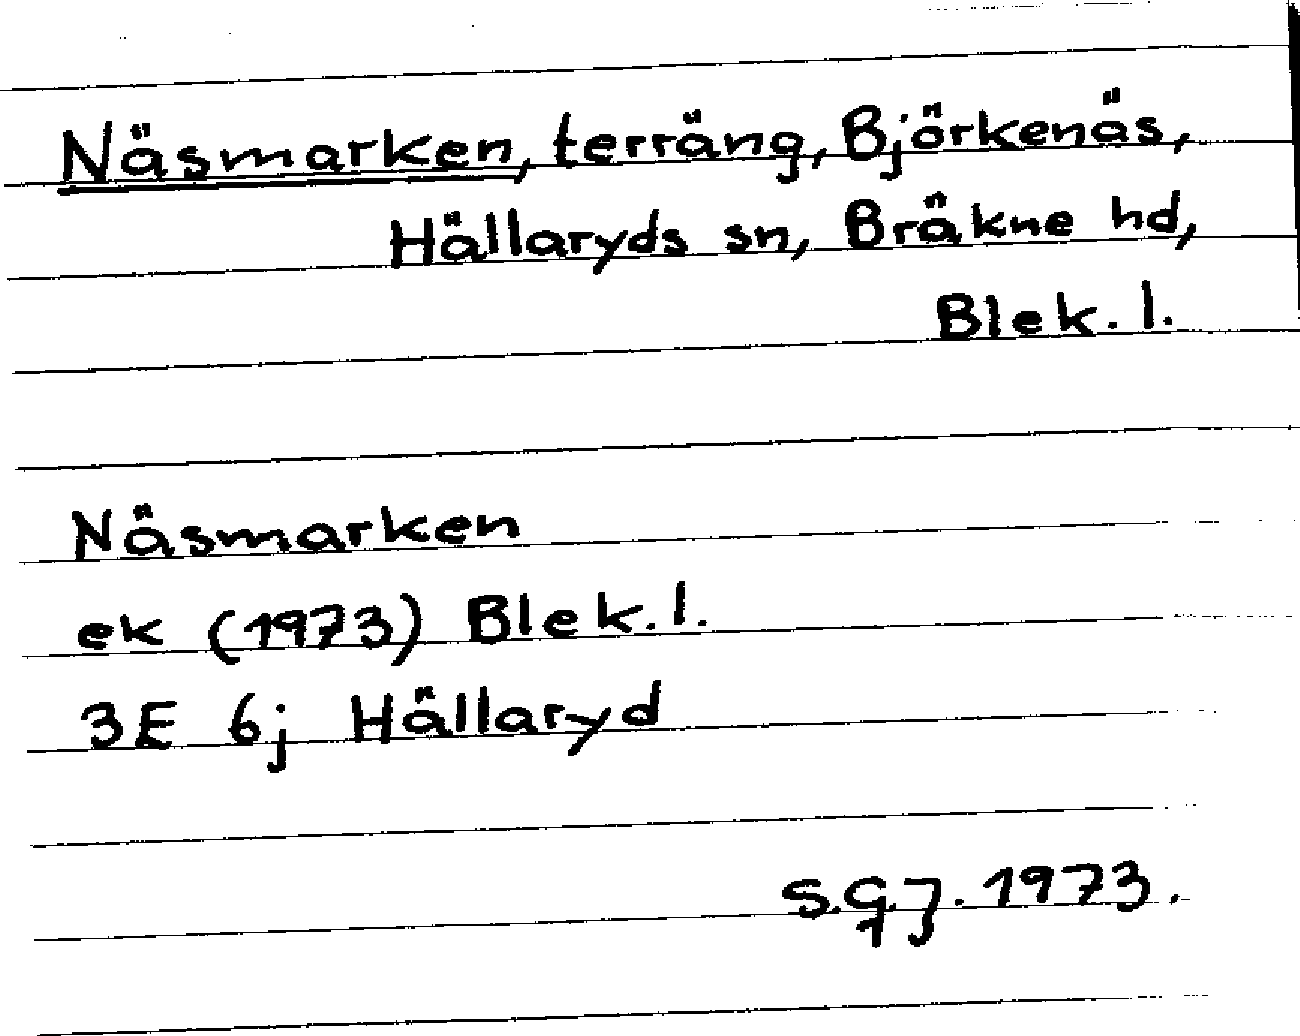 Näsmarken, terräng, Björkenäs,
Hällaryds sn, Bräkne hd,
Blek. l.
Näsmarken
ek (1973) Blek. l.
3E 6j Hällaryd
S.G.J. 1973.